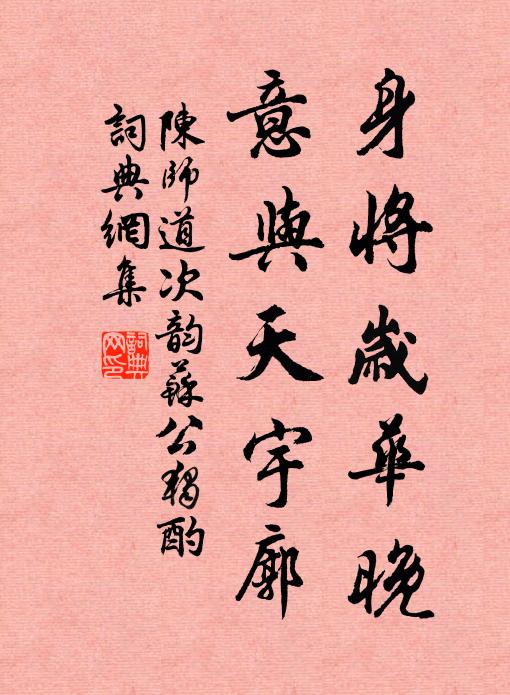 身將歲華晚
意與天宇廓
陳師道次韵蘇公獨酌
詞典網集
詞典网印